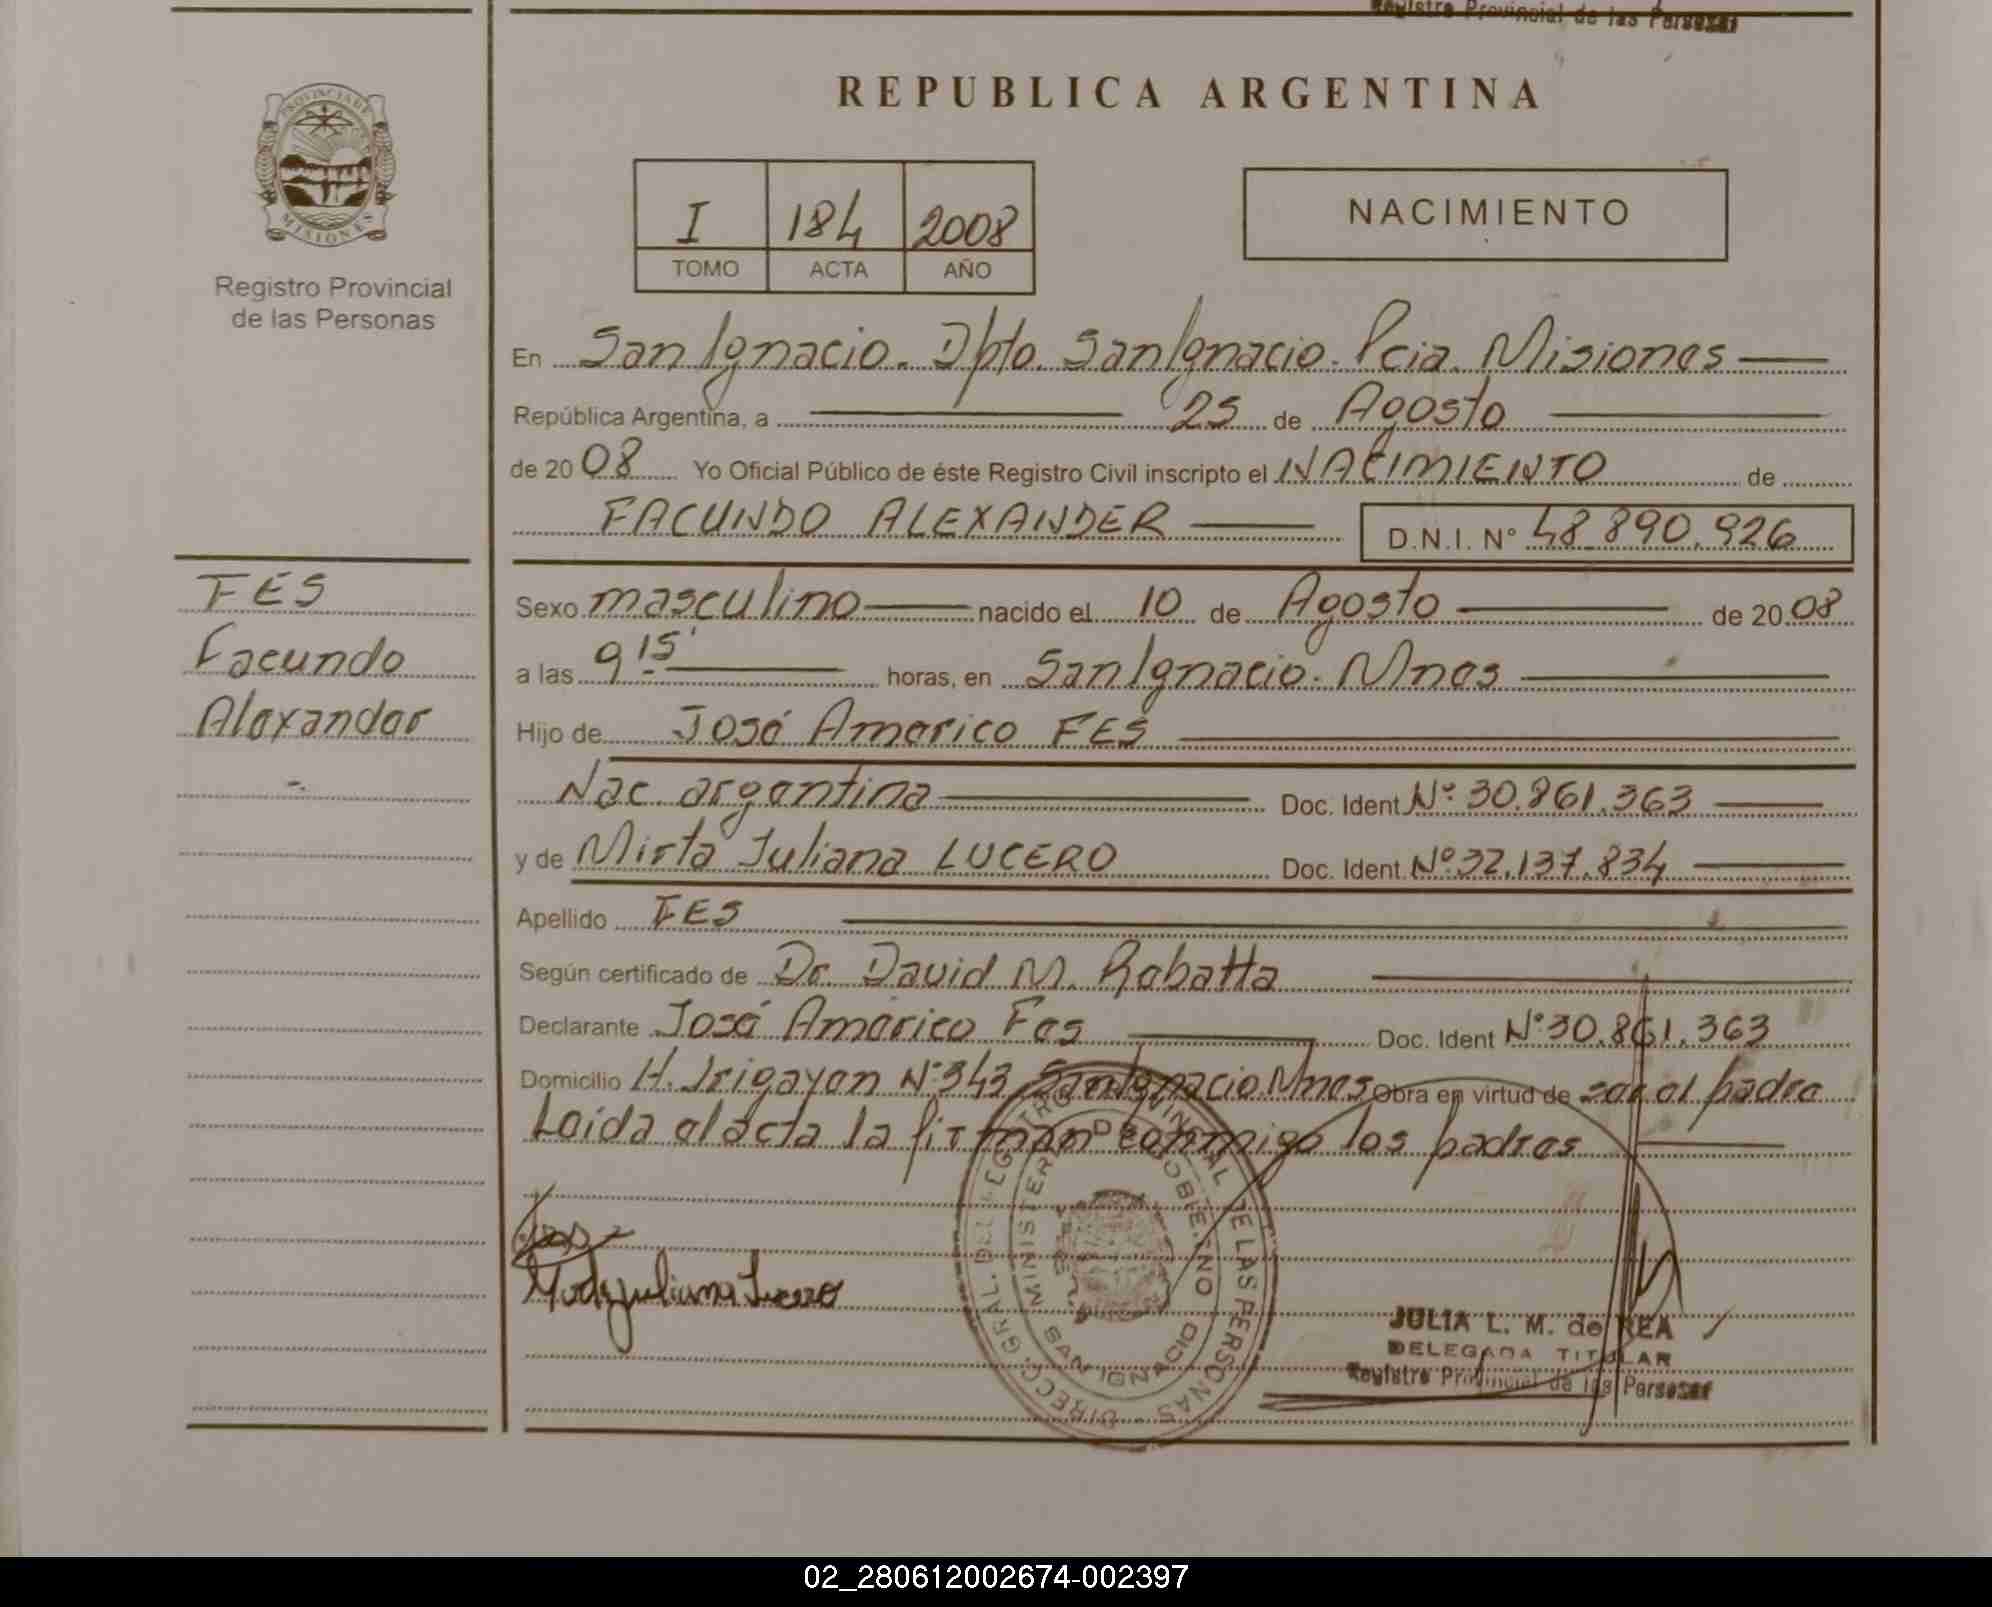 Registro Provincial de las Personas
REPUBLICA ARGENTINA
PROVINCIA DE MISIONES
Registro Provincial
de las Personas
I 184 2008
TOMO ACTA AÑO
NACIMIENTO
En San Ignacio. Dpto. San Ignacio. Pcia. Misiones
República Argentina, a 25 de Agosto
de 2008 Yo Oficial Público de éste Registro Civil inscripto el NACIMIENTO de
FACUNDO ALEXANDER D.N.I. N° 48.890.926
FES
Facundo
Alexander
Sexo masculino nacido el 10 de Agosto de 2008
a las 9 15' horas, en San Ignacio. Mnes
Hijo de José Americo FES
Nac. argentina Doc. Ident Nº 30.861.363
y de Mirta Juliana LUCERO Doc. Ident. Nº 32.137.834
Apellido FES
Según certificado de Dr. David M. Robatta
Declarante José Americo Fes Doc. Ident Nº 30.861.363
Domicilio H. Irigoyen Nº 343 San Ignacio Mnes Obra en virtud de ser el padre
Leida el acta la firman conmigo los padres
Juliana Lucero
DIRECC. GRAL. DEL REGISTRO PROVINCIAL DE LAS PERSONAS
MINISTERIO DE GOBIERNO
SAN IGNACIO
JULIA L. M. de REA
DELEGADA TITULAR
Registro Provincial de las Personas
02_280612002674-002397